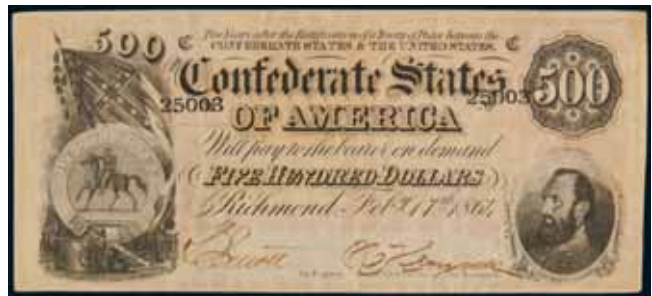 500 C Two Years after the Ratification of a Treaty of Peace between the C
CONFEDERATE STATES & THE UNITED STATES.
Confederate States
25003 25003 500
OF AMERICA
Will pay to the bearer on demand
FIVE HUNDRED DOLLARS
Richmond Feb. 17th 1864